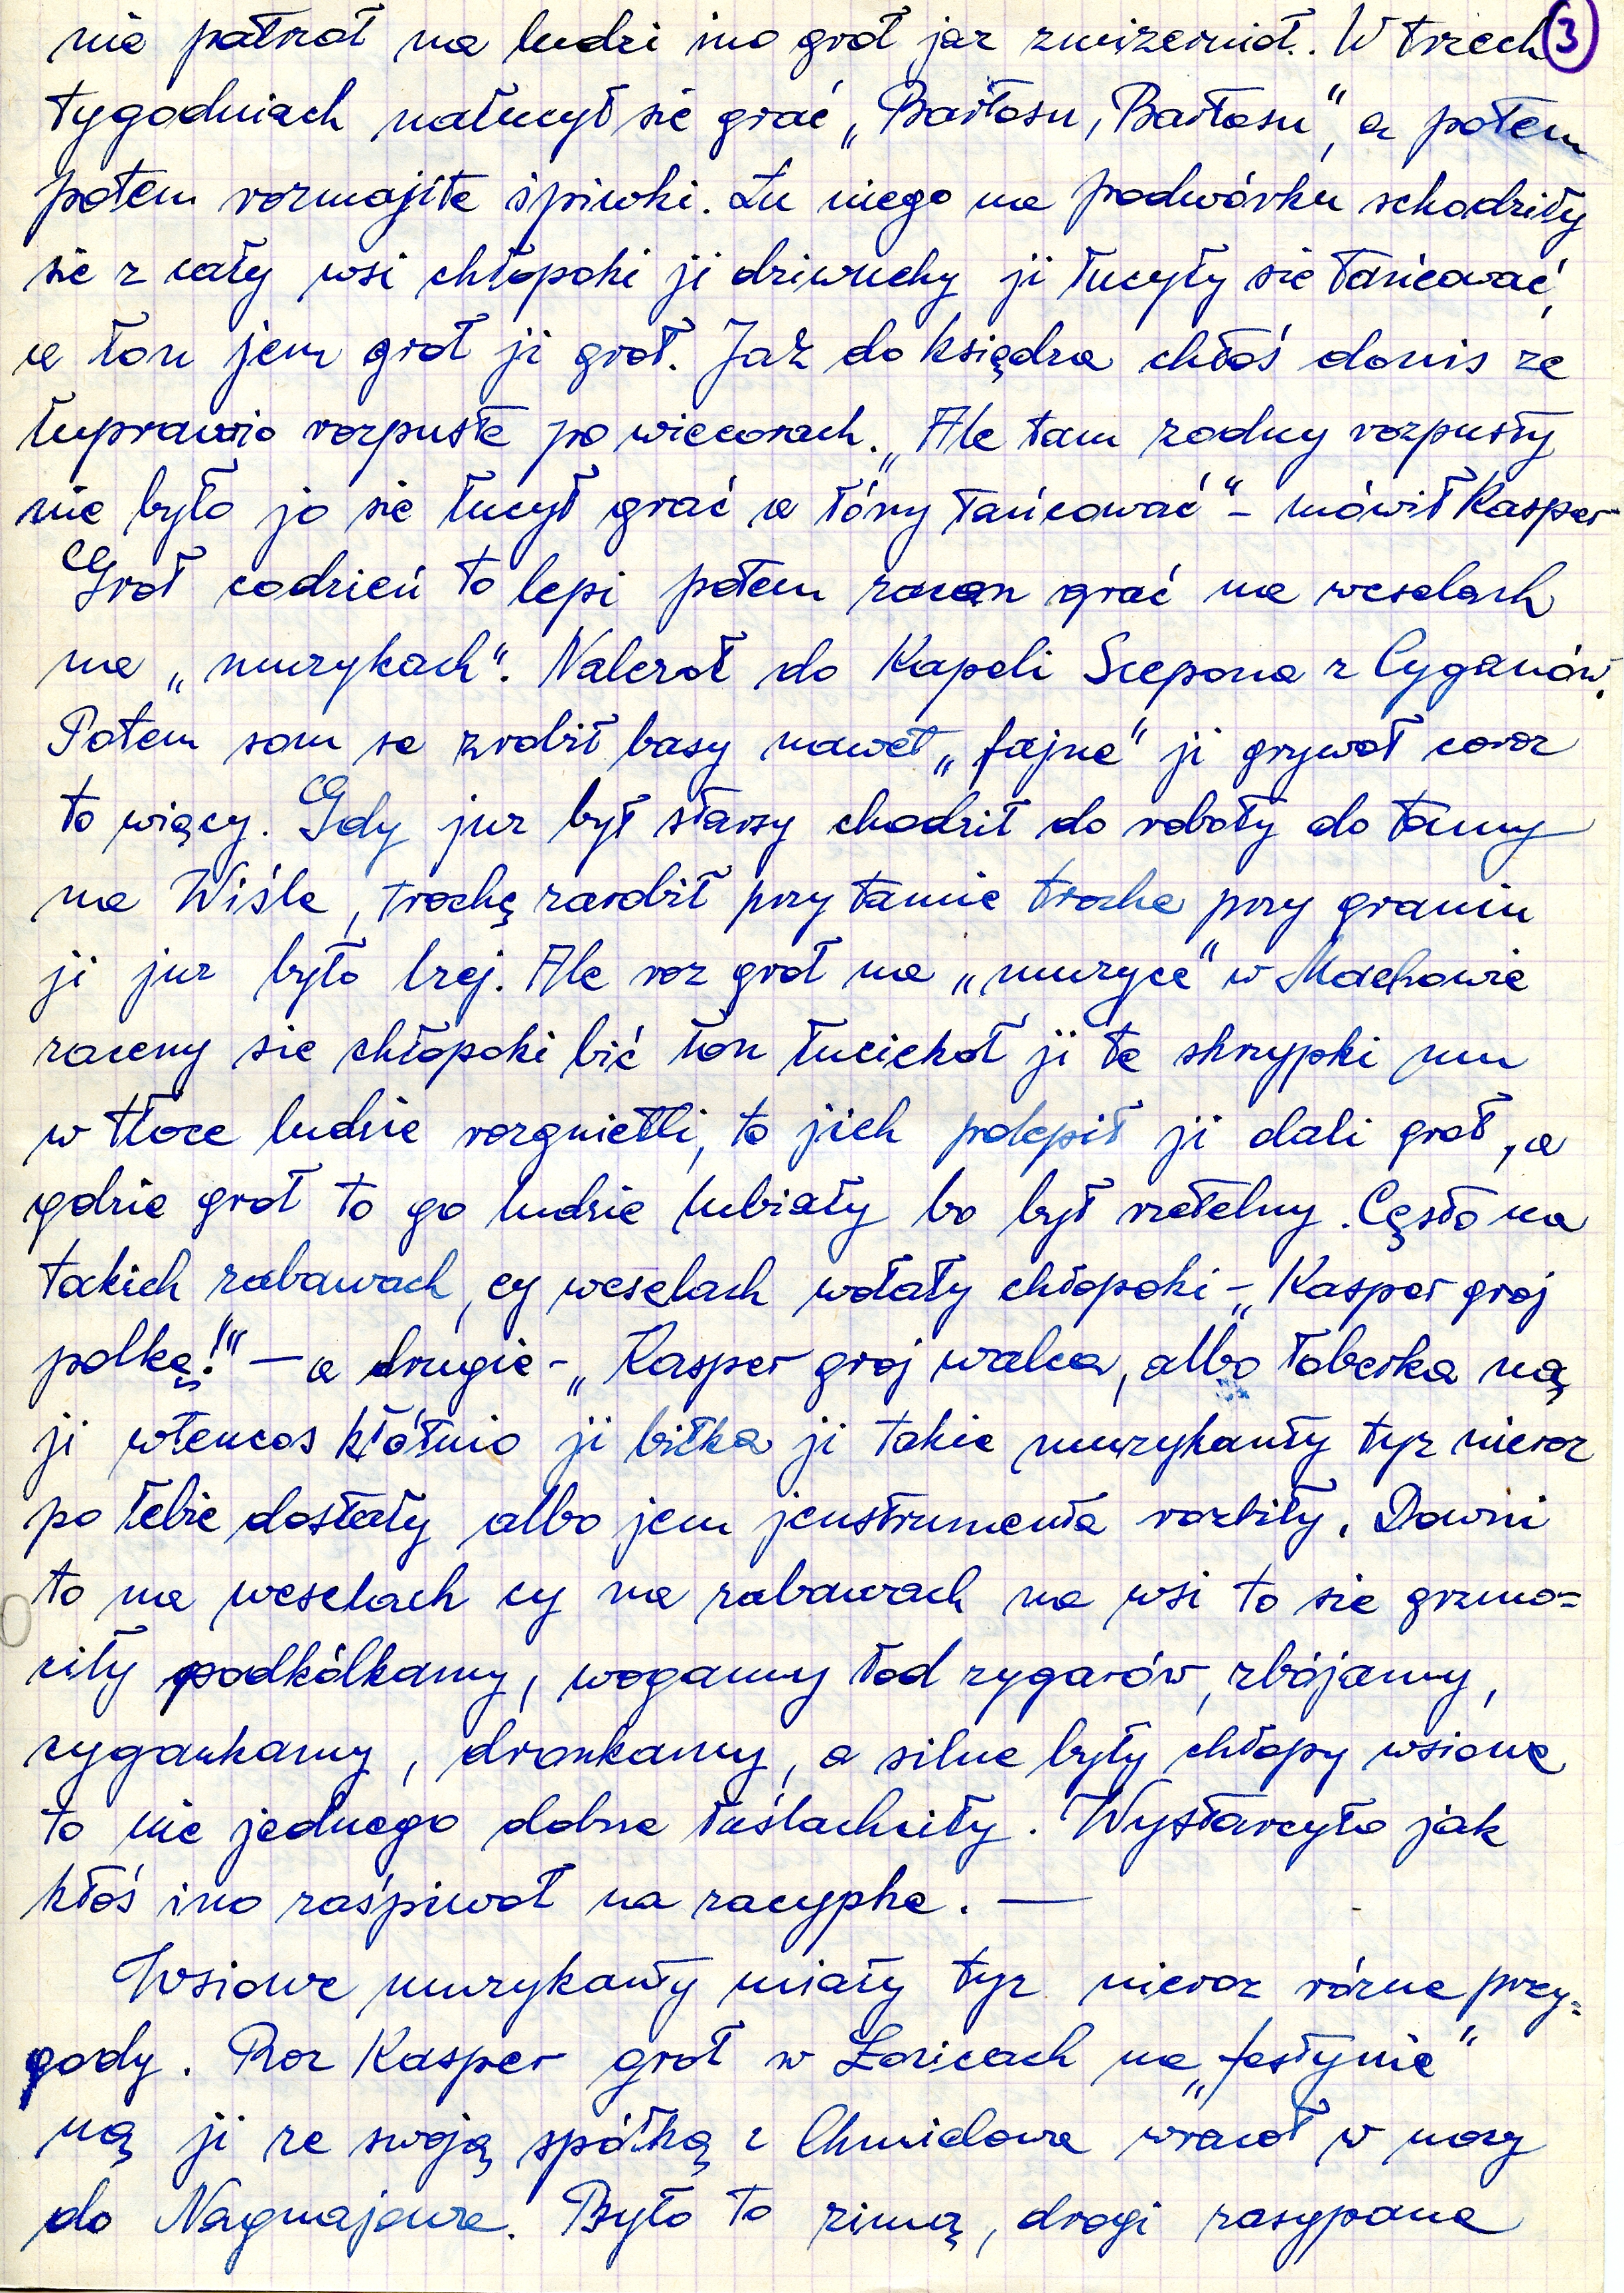 nie patroł na ludzi ino groł jaz zmizernioł. W trzech 3
tygodniach natucył sie grać „Bartosu, Bartosu", a potem
potem rozmajite śpiwki. Łu niego na podwórku schodziły
sie z cały wsi chłopoki ji dziwuchy ji łucyły sie tańcować,
a łon jem groł ji groł. Jaż do księdza chtoś donis ze
łuprawio rozpuste po wiecorach. „Ale tam zodny rozpusty
nie było jo sie łucył grać a łóny tańcować" - mówił Kasper
Groł codzień to lepi potem zacon grać na weselach
na „muzykach". Nalezoł do Kapeli Scepona z Cyganów.
Potem som se zrobił basy nawet „fajne" ji grywoł coroz
to więcy. Gdy juz był starsy chodził do roboty do tamy
na Wiśle, trochę zarobił przy tamie troche przy graniu
ji juz było lzej. Ale roz groł na „muzyce" w Machowie
zaceny sie chłopoki bić łon łuciekoł ji te skrzypki mu
w tłoce ludzie rozgnietli, to jich polepił ji dali groł, a
gdzie groł to go ludzie lubiały bo był rzetelny. Cęsto na
takich zabawach, cy weselach wołały chłopoki - „Kasper groj
polkę!" — a drugie - „Kasper groj walca, albo łoberka" ną
ji wtencos kłótnio ji bitka ji takie muzykanty tyz nieroz
po łebie dostały albo jem jenstrumenta rozbiły. Downi
to na weselach cy na zabawach na wsi to sie grzmo=
ciły podkólkamy, wogamy łod zygarów, zbójamy,
cygankamy, dronkamy, a silne były chłopy wsiowe
to nie jednego dobrze łuślachciły. Wystarcyło jak
ktoś ino zaśpiwoł na zacypke. —
Wsiowe muzykanty miały tyz nieroz rózne przy=
gody. Roz Kasper groł w Zoricach na „festynie"
ną ji ze swoją spółką z Chmielowa wracoł w nocy
do Nagnajowa. Było to zimą, drogi zasypane